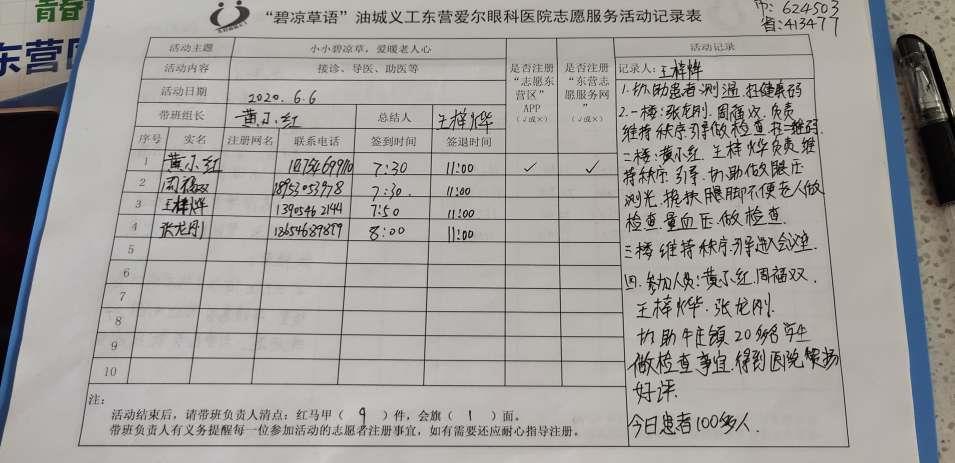 青春
东营
市: 624503
省: 413477
“碧凉草语”油城义工东营爱尔眼科医院志愿服务活动记录表
活动主题 小小碧凉草，爱暖老人心
活动内容 接诊、导医、助医等
活动日期 2020.6.6
带班组长 黄小红 总结人 王梓烨
是否注册“志愿东营区”APP（√或×）
是否注册“东营志愿服务网”（√或×）
序号 实名 注册网名 联系电话 签到时间 签退时间
1 黄小红 7:30 11:00 ✓ ✓
2 周福双 18953053978 7:30 11:00
3 王梓烨 13905462144 7:50 11:00
4 张龙刚 18654689879 8:00 11:00
5
6
7
8
9
10
注：
活动结束后，请带班负责人清点：红马甲（ 9 ）件，会旗（ 1 ）面。
带班负责人有义务提醒每一位参加活动的志愿者注册事宜，如有需要还应耐心指导注册。
活动记录
记录人：王梓烨
1.协助患者测温.扫健康码
2.一楼:张龙刚.周福双.负责
维持秩序引导做检查扫二维码.
二楼:黄小红.王梓烨负责维
持秩序.引导.协助做眼压
测光.搀扶腿脚不便老人做
检查.量血压.做检查.
三楼维持秩序.引导进入会议室.
四.参加人员:黄小红.周福双.
王梓烨.张龙刚.
协助牛庄镇20多名学生
做检查事宜.得到医院表扬
好评.
今日患者100多人.